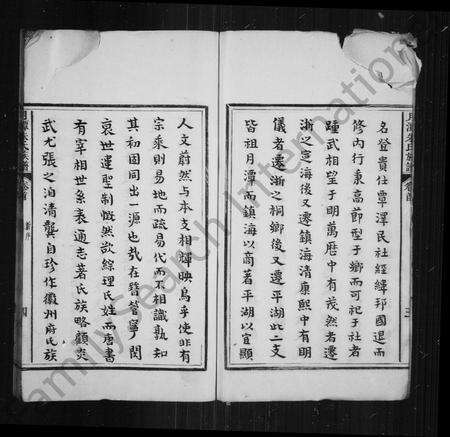 月潭朱氏族譜 卷首 三
名登貴仕覃澤民社經緯邦國退而
修內行秉高節型于鄉而可祀于社者
踵武相望于明萬曆中有茂然者遷
浙之定海後又遷鎮海清康熙中有朗
儀者遷浙之桐鄉後又遷平湖此二支
皆祖月潭而鎮海以商著平湖以宦顯
人文蔚然與本支相輝映烏乎使非有
宗乘則易地而疏易代而不相識孰知
其初固同出一源也哉在昔簪寧閥
衰世違聖制慨然欲綜理氏姓而唐書
有宰相世系表通志著氏族略顧炎
武尤張之洎清龔自珍作徽州府氏族
月潭朱氏族譜 卷首 新序 四
FamilySearch International